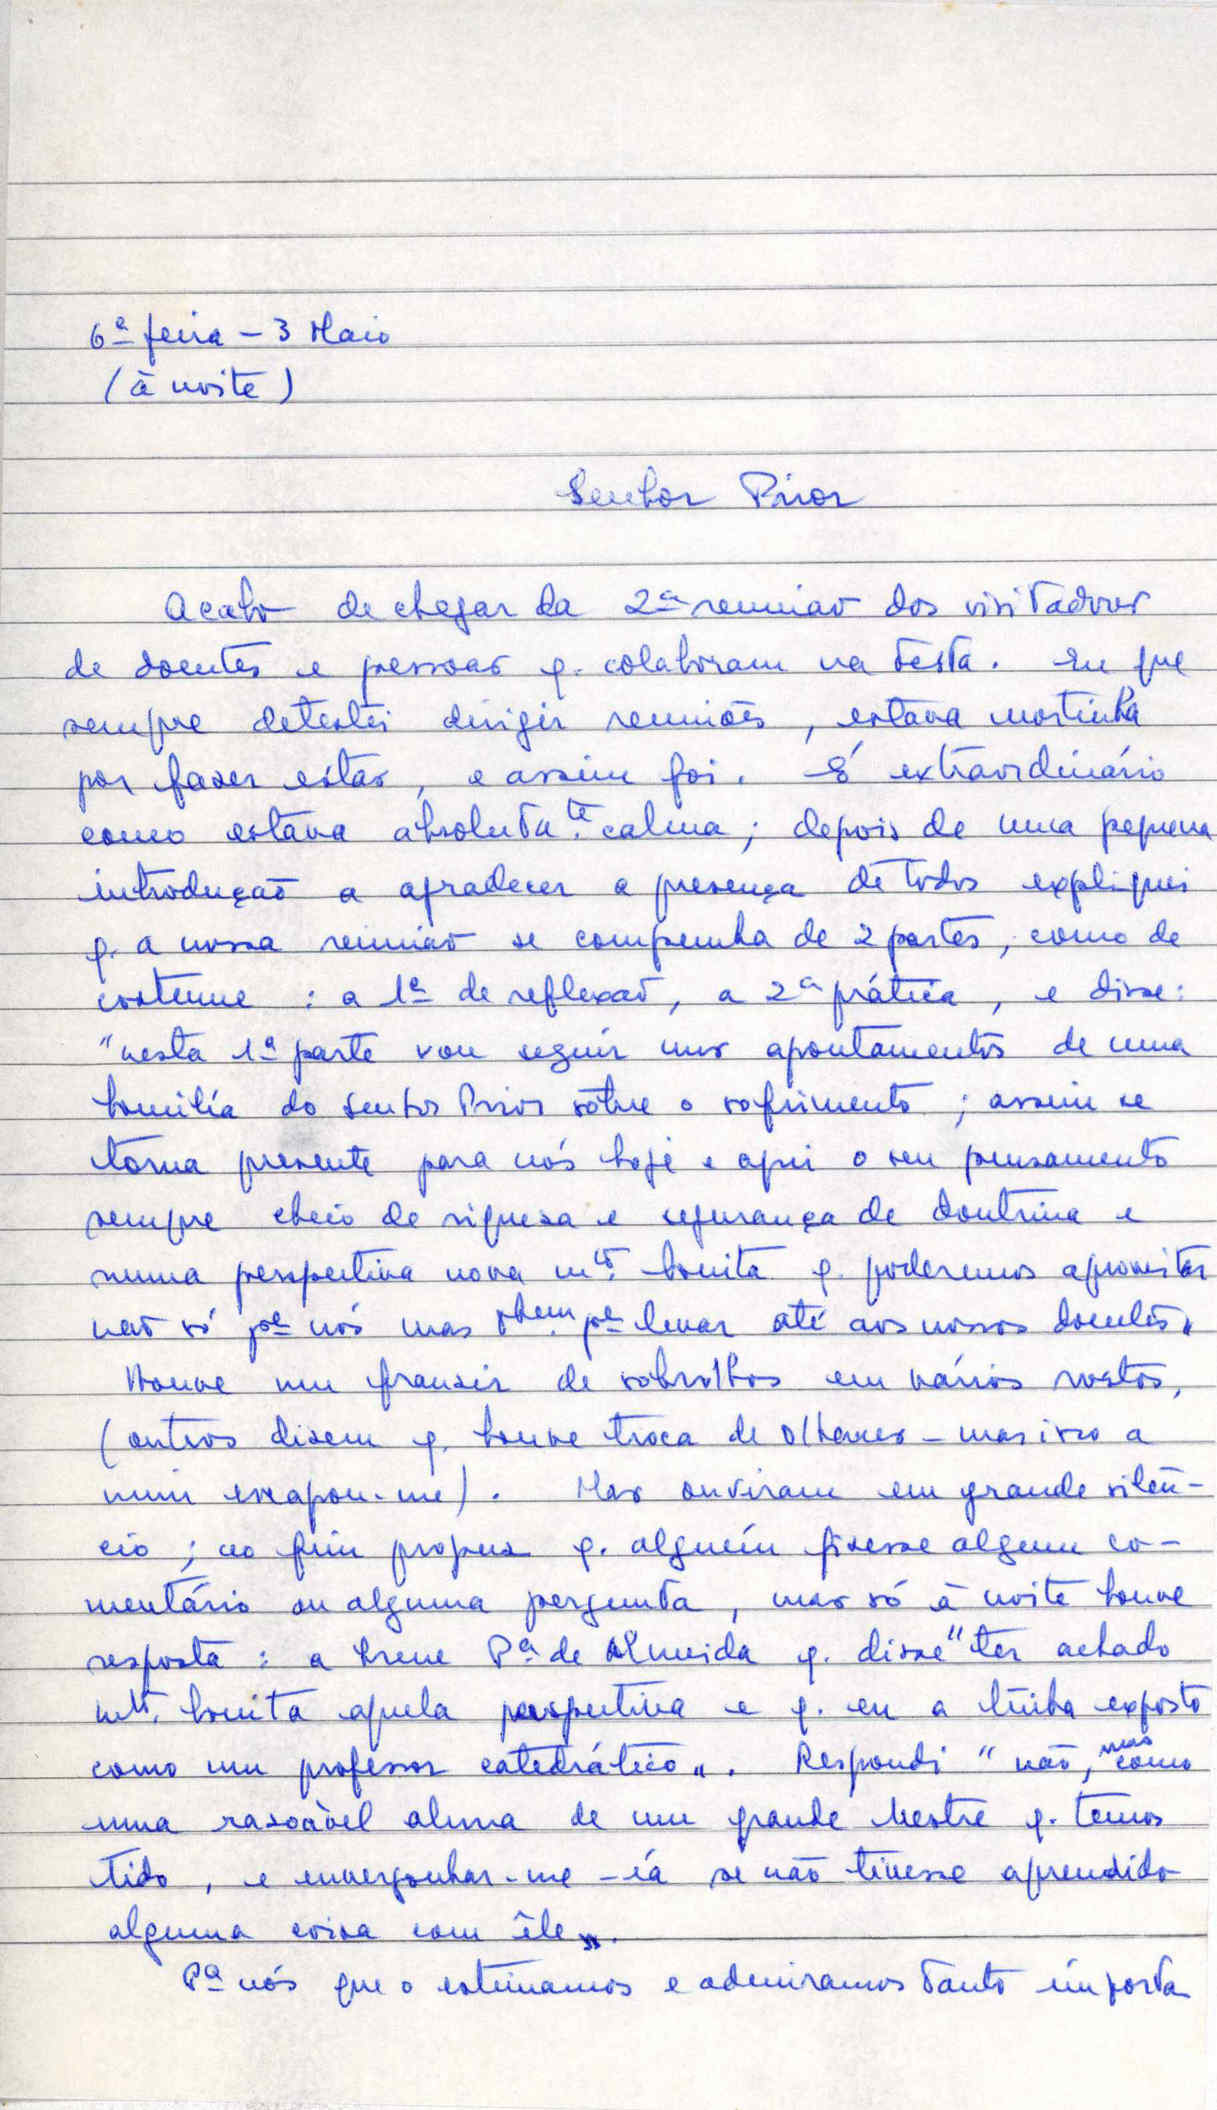 6ª feira - 3 Maio
(à noite)
Senhor Prior
Acabo de chegar da 2ª reunião dos visitadores
de doentes e pessoas q. colaboram na festa. Eu que
sempre detestei dirigir reuniões, estava mortinha
por fazer estas, e assim foi. É extraordinário
como estava absoluta.te calma; depois de uma pequena
introdução a agradecer a presença de todos expliquei
q. a nossa reunião se compunha de 2 partes, como de
costume: a 1ª de reflexão, a 2ª prática, e disse:
"nesta 1ª parte vou seguir uns apontamentos de uma
homilia do Senhor Prior sôbre o sofrimento; assim se
torna presente para nós hoje e aqui o seu pensamento
sempre cheio de riqueza e segurança de doutrina e
numa perspectiva nova mto. bonita q. poderemos aproveitar
não só pª nós mas tbem. pª levar até aos nossos doentes".
Houve um franzir de sobrolhos em vários rostos,
(outros dizem q. houve troca de olhares - mas isso a
mim escapou-me). Mas ouviram em grande silên-
cio; no fim propus q. alguém fizesse algum co-
mentário ou alguma pergunta, mas só à noite houve
resposta: a Irene Pª de Almeida q. disse "ter achado
mto. bonita aquela perspectiva e q. eu a tinha exposto
como um professor catedrático". Respondi "não, mas como
uma razoável aluna de um grande Mestre q. temos
tido, e envergonhar-me-ía se não tivesse aprendido
alguma coisa com êle".
Pª nós que o estimamos e admiramos tanto importa